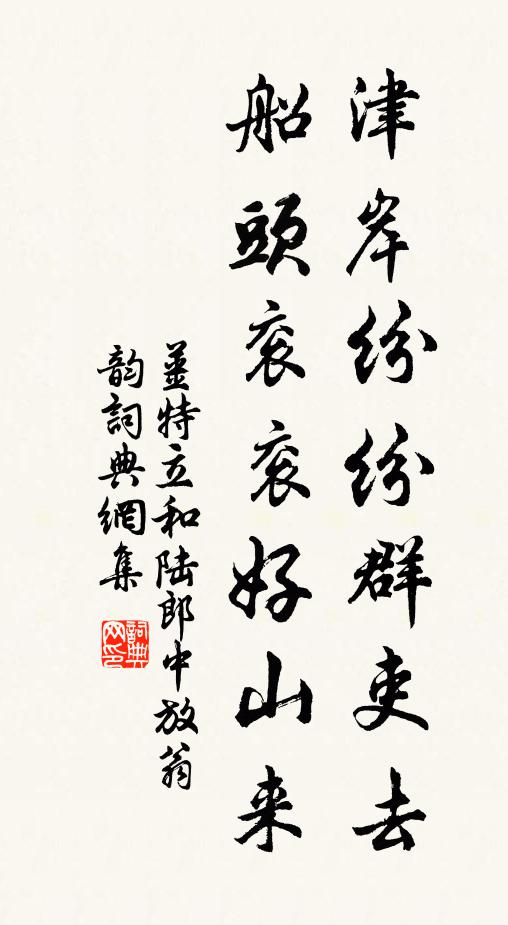 津岸纷纷群吏去
船頭衮衮好山来
姜特立和陆郎中放翁
韵詞典網集
詞典网印